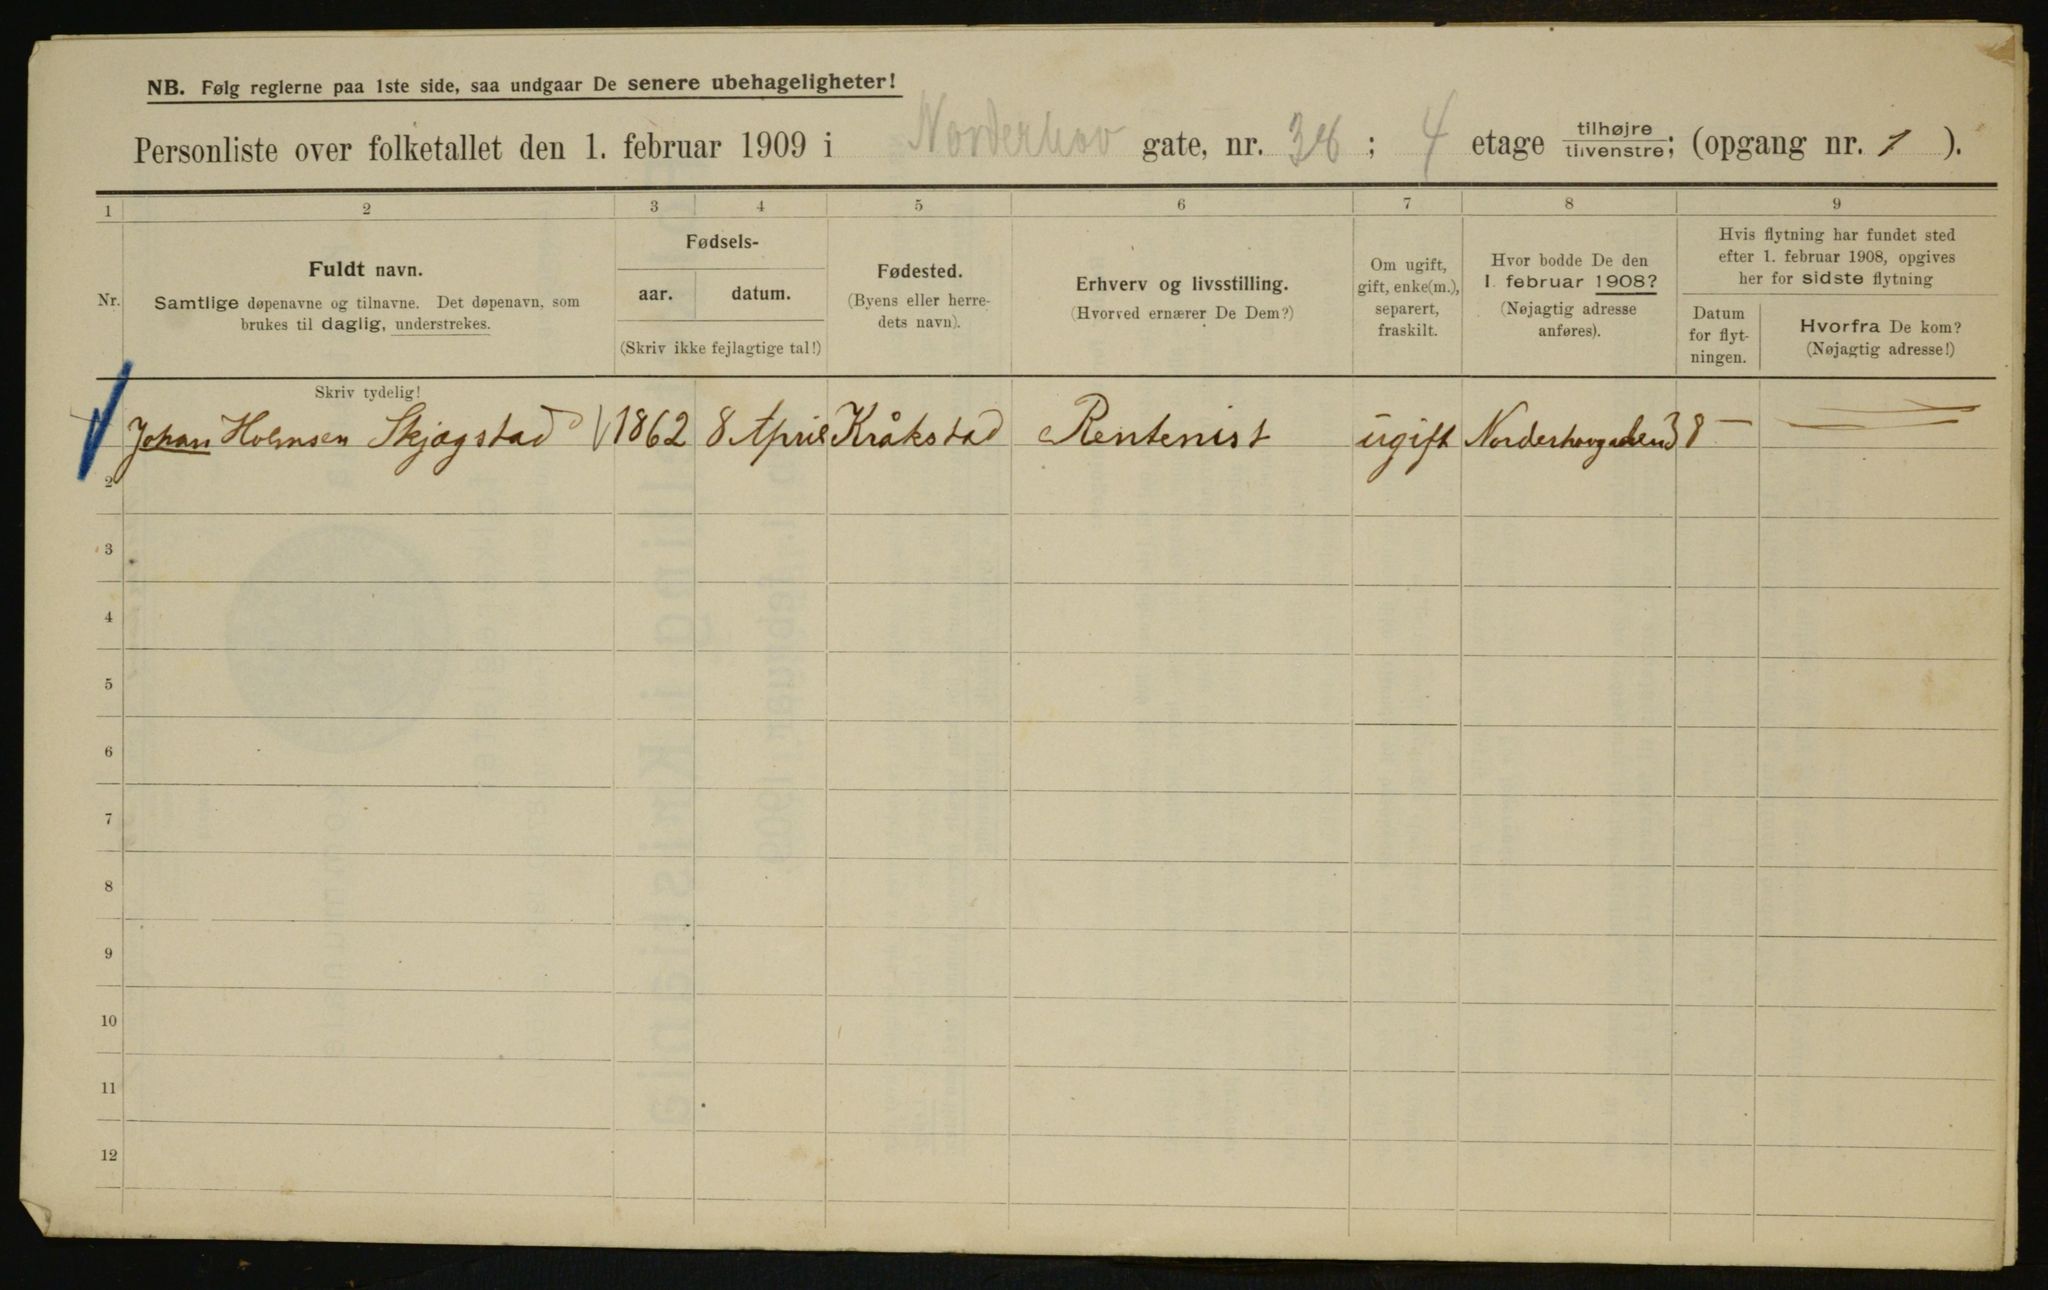 NB. Følg reglerne paa 1ste side, saa undgaar De senere ubehageligheter!
Personliste over folketallet den 1. februar 1909 i Norderhov gate, nr. 38 ; 4 etage tilhøjre tilvenstre; (opgang nr. 1 ).
1 2 3 4 5 6 7 8 9
Nr.
Fuldt navn.
Samtlige døpenavne og tilnavne. Det døpenavn, som
brukes til daglig, understrekes.
Skriv tydelig!
Fødsels-
aar. datum.
(Skriv ikke fejlagtige tal!)
Fødested.
(Byens eller herre-
dets navn).
Erhverv og livsstilling.
(Hvorved ernærer De Dem?)
Om ugift,
gift, enke(m.),
separert,
fraskilt.
Hvor bodde De den
1. februar 1908?
(Nøjagtig adresse
anføres).
Hvis flytning har fundet sted
efter 1. februar 1908, opgives
her for sidste flytning
Datum
for flyt-
ningen.
Hvorfra De kom?
(Nøjagtig adresse!)
Johan Holmsen Skjægstad 1862 8 April Kråkstad Rentenist ugift Norderhovgaden 38 —
2
3
4
5
6
7
8
9
10
11
12